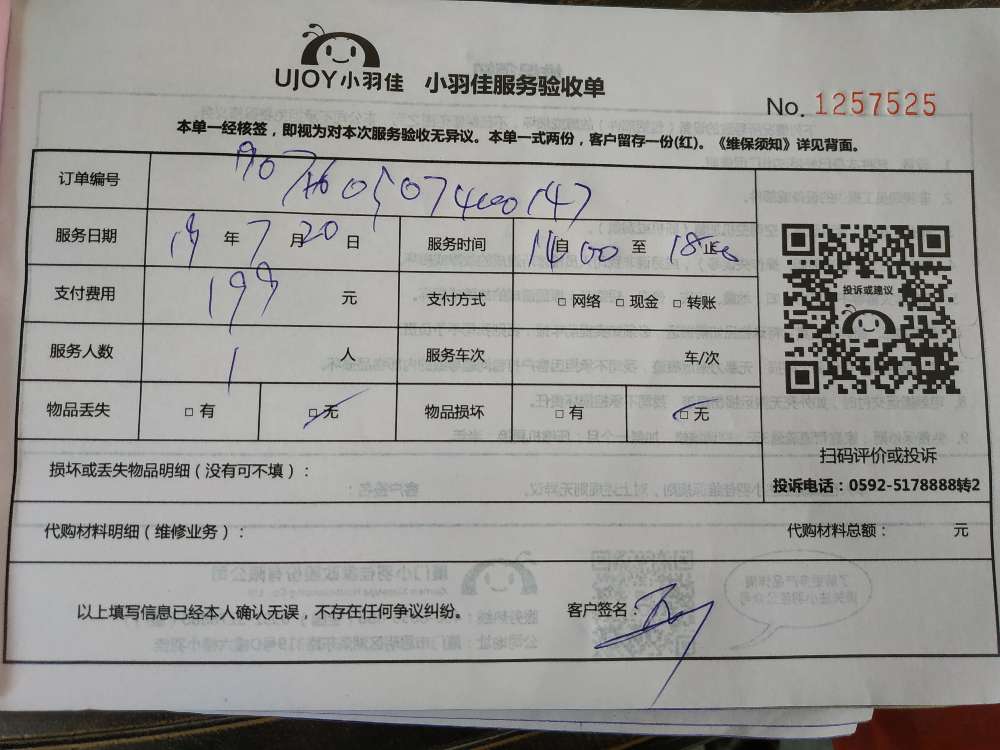 UJOY小羽佳 小羽佳服务验收单
No. 1257525
本单一经核签，即视为对本次服务验收无异议。本单一式两份，客户留存一份(红)。《维保须知》详见背面。
订单编号
服务日期 19 年 7 月 20 日 服务时间 14 自 00 至 18 止
支付费用 199 元 支付方式 □ 网络 □ 现金 □ 转账
投诉或建议
服务人数 1 人 服务车次 车/次
物品丢失 □ 有 □ 无 物品损坏 □ 有 □ 无
扫码评价或投诉
损坏或丢失物品明细（没有可不填）：
投诉电话：0592-5178888转2
代购材料明细（维修业务）： 代购材料总额： 元
以上填写信息已经本人确认无误，不存在任何争议纠纷。 客户签名：